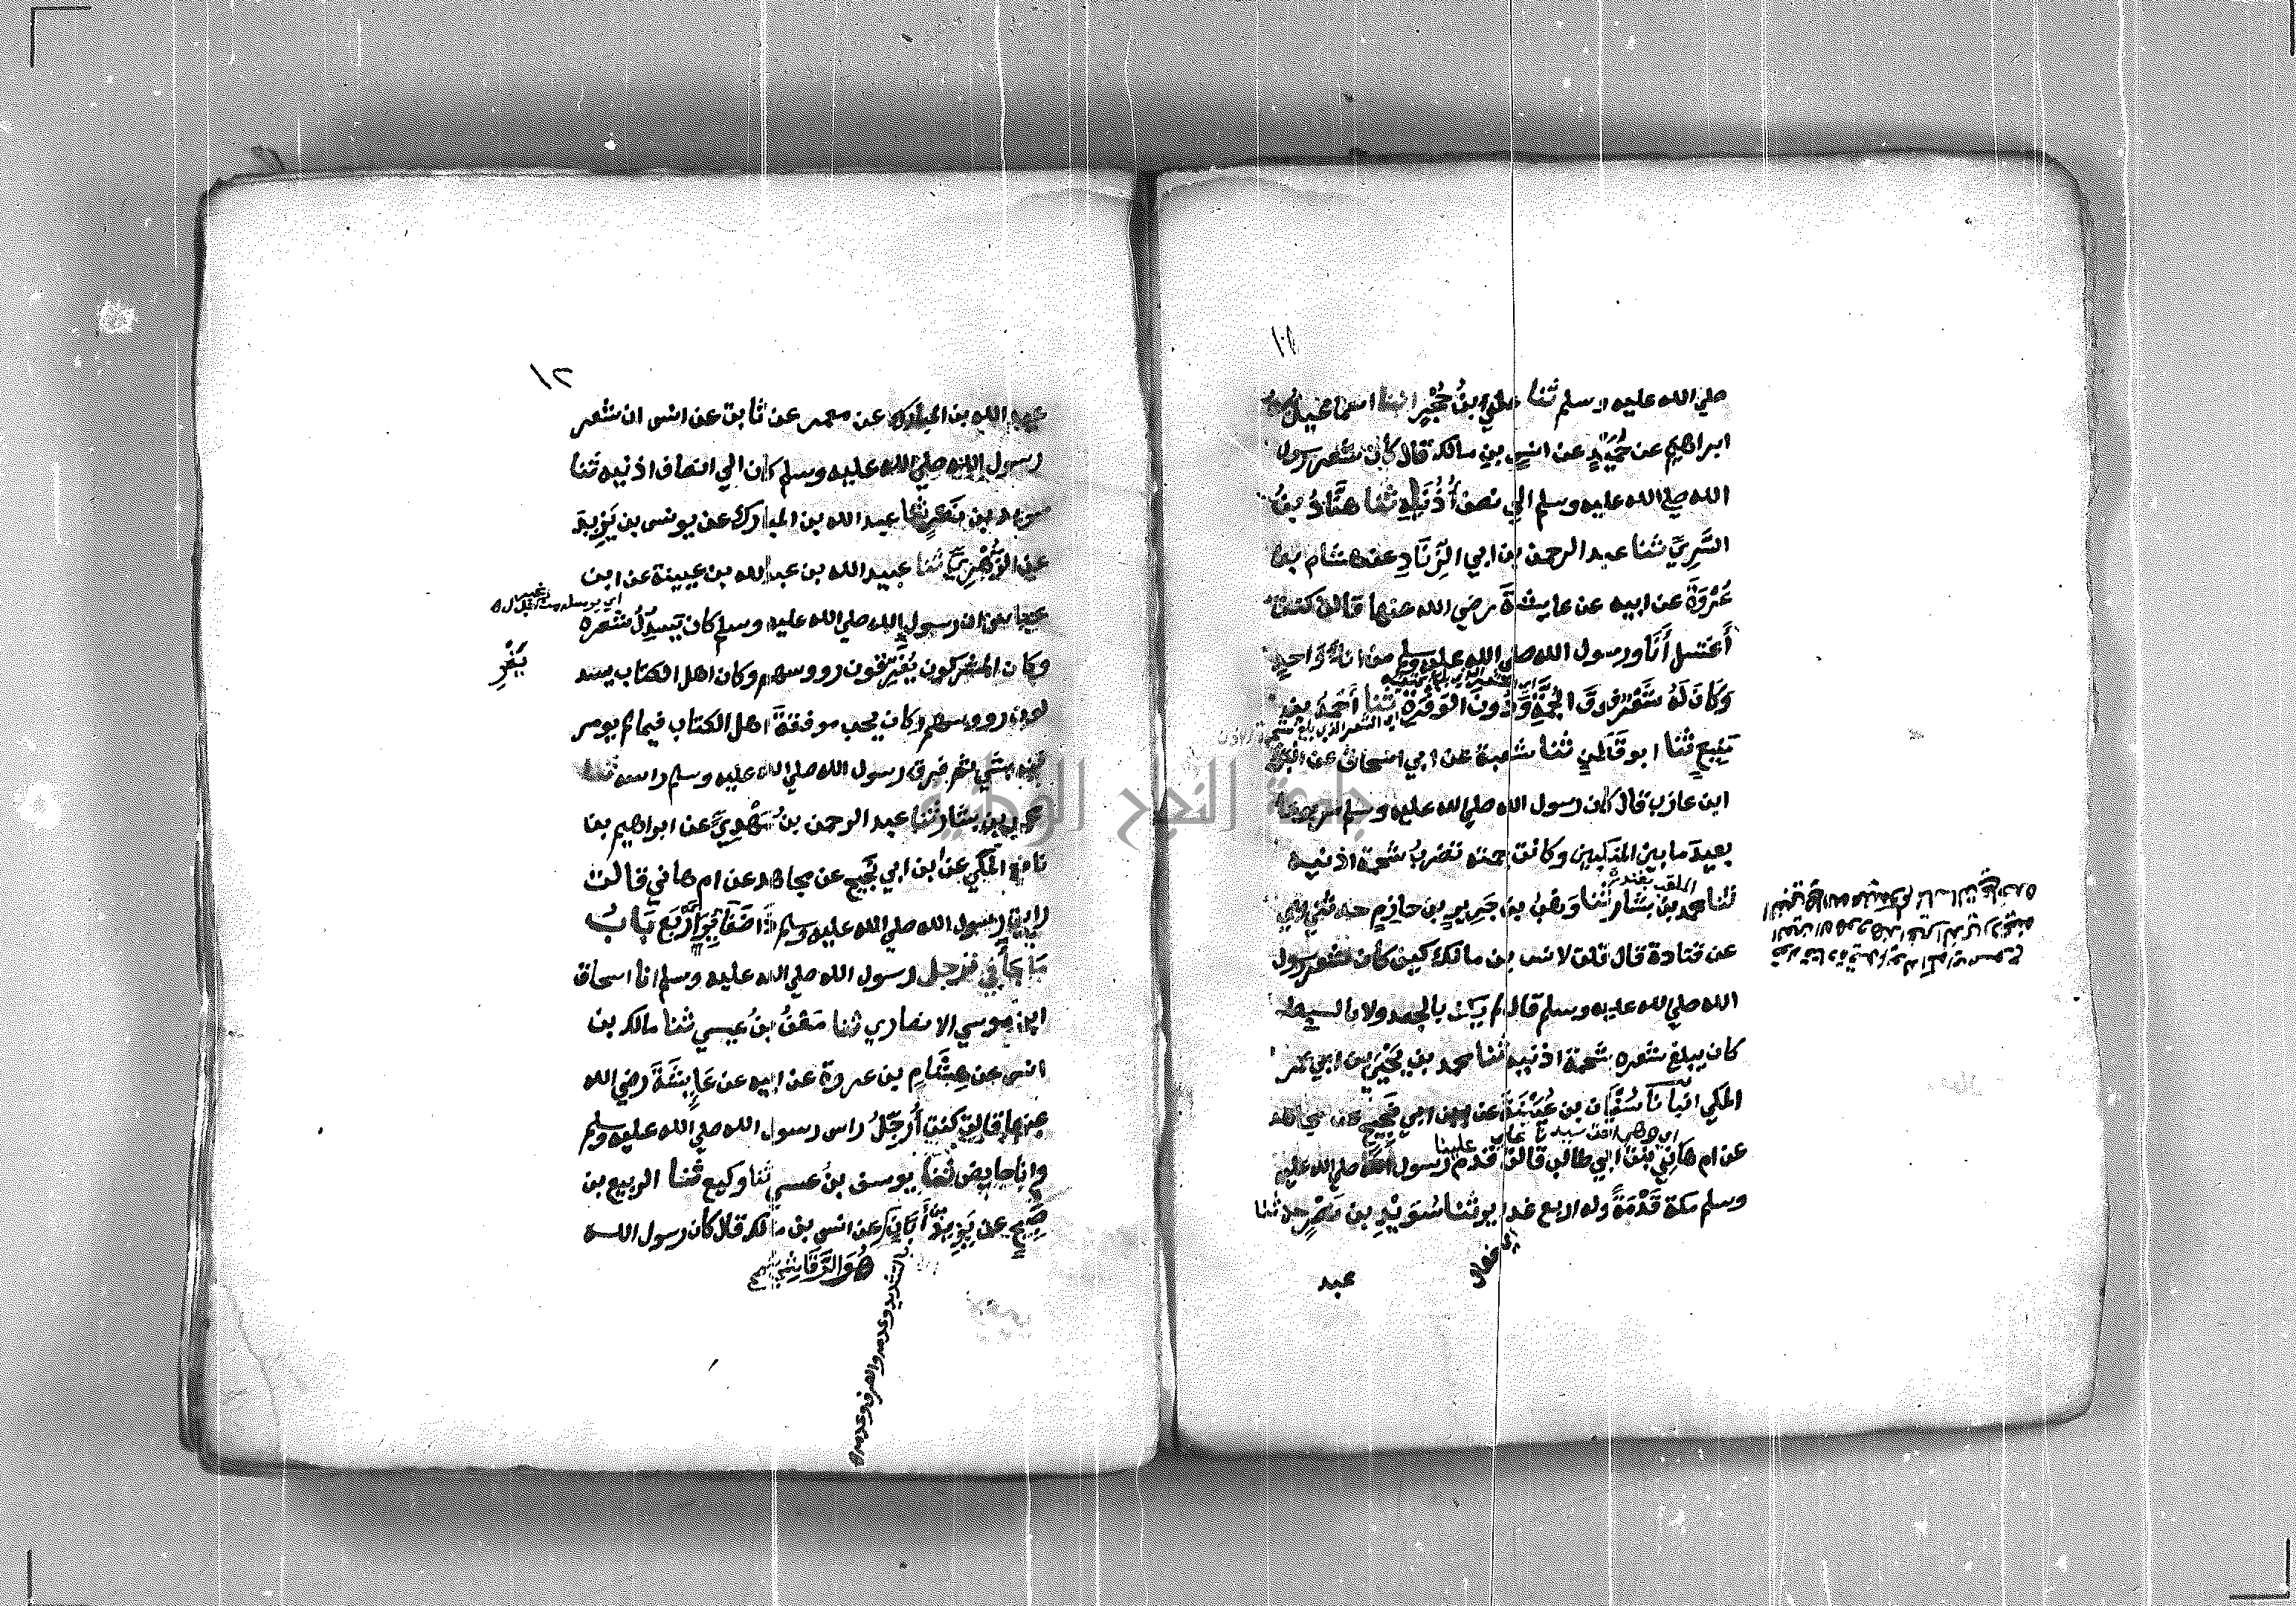 ١١
صلي الله عليه وسلم ثنا علي ابنُ حُجْرٍ انبنا اسماعيل بن
ابراهيم عن حُمَيْدٍ عن انسٍ بنِ مالك قال كان شعر رسول
الله صلي الله عليه وسلم الي نصف أُذُنَيْهِ ثنا هنَّادُ بنُ
السَّرِيِّ ثنا عبد الرحمن بن ابي الزِّنَادِ عن هشام بن
عُرْوَةَ عن ابيه عن عايشةَ رضي الله عنها قالت كنت
أغتسل أنَا ورسول الله صلي الله عليه وسلم من اناءٍ وَاحِدٍ
وَكَانَ لَهُ شَعْرٌ فوقَ الجُمَّةِ وَدُونَ الوَفْرَةِ ثنا أحمَدُ بن
مَنِيعٍ ثنا ابو قَطَنٍ ثنا شعبة عن ابي اسحاق عن البَرَاءِ
ابن عازب قال كان رسول الله صلي الله عليه وسلم مربوعا
بعيدَ ما بين المنكبين وكانت جمته تضربُ شحمة اذنيه
الملقب بغندر
ثنا محمد بن بَشَّار ثنا وَهْبُ بن جَرِيرِ بن حازِمٍ حدثني ابي
عن قتادة قال قلت لانس بن مالك كيف كان شعر رسول
الله صلي الله عليه وسلم قال لم يكن بالجعد ولا بالسبط
كان يبلغ شعره شحمة اذنيه ثنا محمد بن يَحْيَى بن ابي عمر
المكي انبأنا سُفْيَان بن عُيَيْنَةَ عن ابن ابي نَجِيحٍ عن مجاهد
عن ام هانِئٍ بنت ابي طالب قالت قدم رسول الله صلي الله عليه
علينا
وسلم مكة قَدْمَةً وله اربع غداير ثنا سُوَيْدِ بن نَصْرٍ حدثنا
اي ضفاير
عبد
١٢
عبد الله بن المبارك عن معمر عن ثابت عن انس ان شعر
رسول الله صلي الله عليه وسلم كان الي انصاف اذنيه ثنا
سويد بن نَصْرٍ ثنا عبد الله بن المبارك عن يونس بن يَزِيدَ
عن الزُّهْرِيِّ ثنا عبيد الله بن عبد الله بن عيينة عن ابن
عباس ان رسول الله صلي الله عليه وسلم كان يَسْدِلُ شعره
وكان المشركون يُفَرِّقون رووسهم وكان اهل الكتاب يسد
يَفْرِ
لون رووسهم وكان يحب موفقةَ اهل الكتاب فيما لم يومر
فيه بشي ثم فرق رسول الله صلي الله عليه وسلم راسه ثنا
محمد بن بشار ثنا عبد الرحمن بنُ مَهْدِيٍّ عن ابراهيم بنا
نافع المكي عن ابن ابي نَجِيح عن مجاهد عن ام هاني قالت
رايت رسول الله صلي الله عليه وسلم ذا ضَفَايِرَ أَرْبَعٍ بَابُ
مَا جَأ في ترجل رسول الله صلي الله عليه وسلم انا اسحاق
ابن موسي الانصاري ثنا مَعْنُ بنُ عيسي ثنا مالك بن
انس عن هِشَامِ بن عروة عن ابيه عن عَايِشَةَ رضي الله
عنها قالت كنت أُرَجِّلُ راس رسول الله صلي الله عليه وسلم
وانا حايض ثنا يوسف بنُ عيسي ثنا وكيع ثنا الربيع بن
صَبِيحٍ عن يَزِيدَ بن أَبَانَ عن انس بن مالك قال كان رسول الله
هُوَ الرَّقَاشِي
بالتشديد وعدمه والصرف وعدمه
جامعة النجاح الوطنية